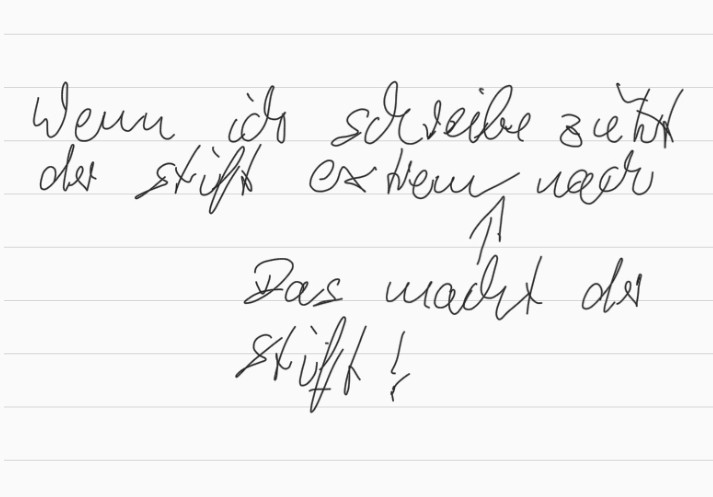 Wenn ich schreibe zieht
der stift extrem nach
Das macht der
stift!